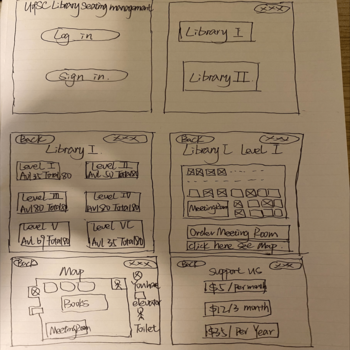 UPSC Library Seating management
Log in
Sign in
xxx
Library I
Library II
Back
xxx
Library I
Level I
Avl 35 Total 80
Level II
Avl 50 Total 80
Level III
Avl 80 Total 80
Level IV
Avl 80 Total 80
Level V
Avl 69 Total 80
Level VI
Avl 35 Total 80
Back
xxx
Library I Level I
Meeting Room
Order Meeting Room
Click here See Map
Back
xxx
Map
Books
Meeting Room
You here
elevator
Toilet
Back
xxx
Support us
$5/Per month
$12/3 month
$35/Per Year